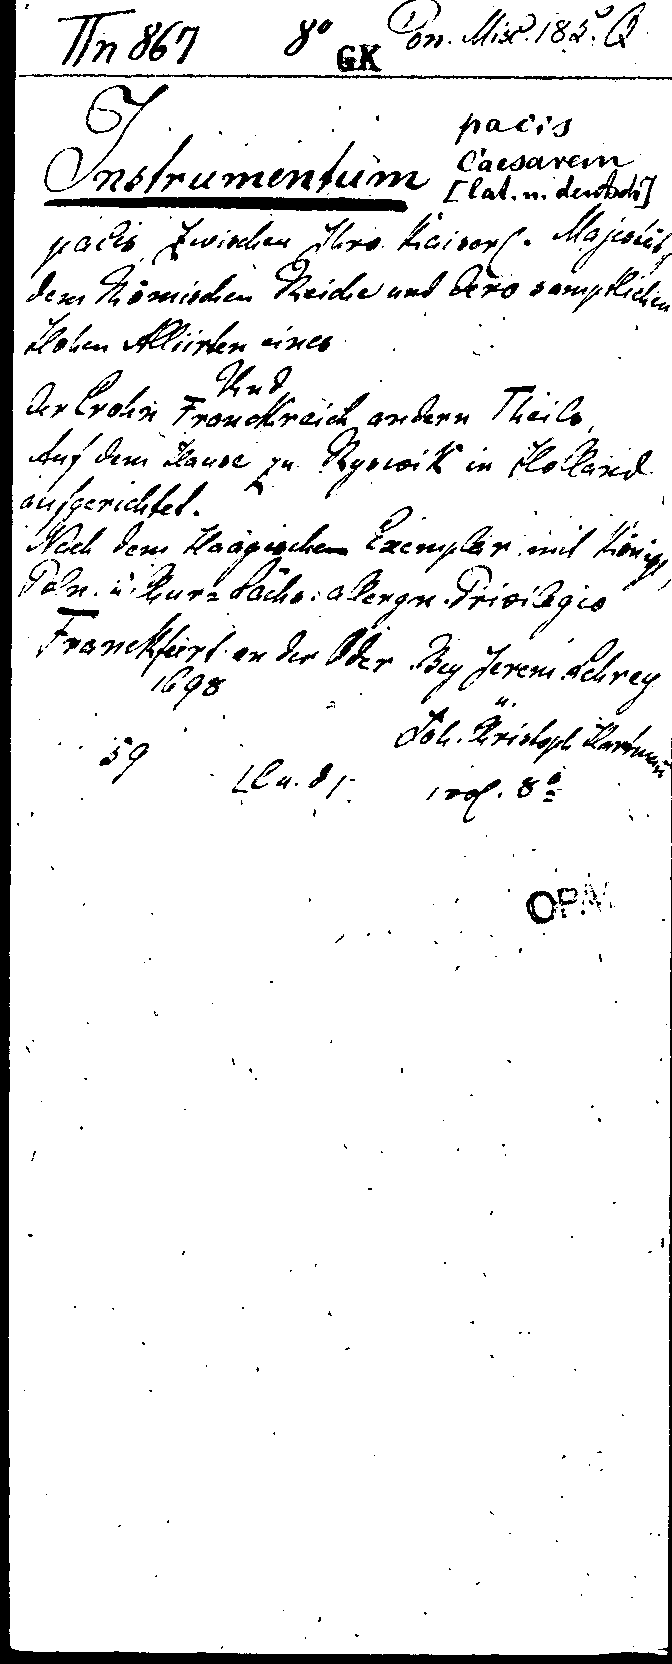 IIn 867 8° GK Pon. Misc. 185. Q
pacis
Caesarem
Instrumentum [lat. u. deutsch]
pacis zwischen Ihro Kaiserl. Majestät,
dem Römischen Reiche und dero sämptlichen
Hohen Alliirten eines
Und
der Crohn Franckreich andern Theils,
Auf dem Hause zu Ryswik in Holland
aufgerichtet.
Nach dem Haagischen Exemplar mit Königl.
Poln. u. Chur= Sächs: allergn. Privilegio
Franckfurt an der Oder Bey Jerem Schrey
1698 u.
Joh. Christoph Hartmann
59 1 vol. 8°
OPM